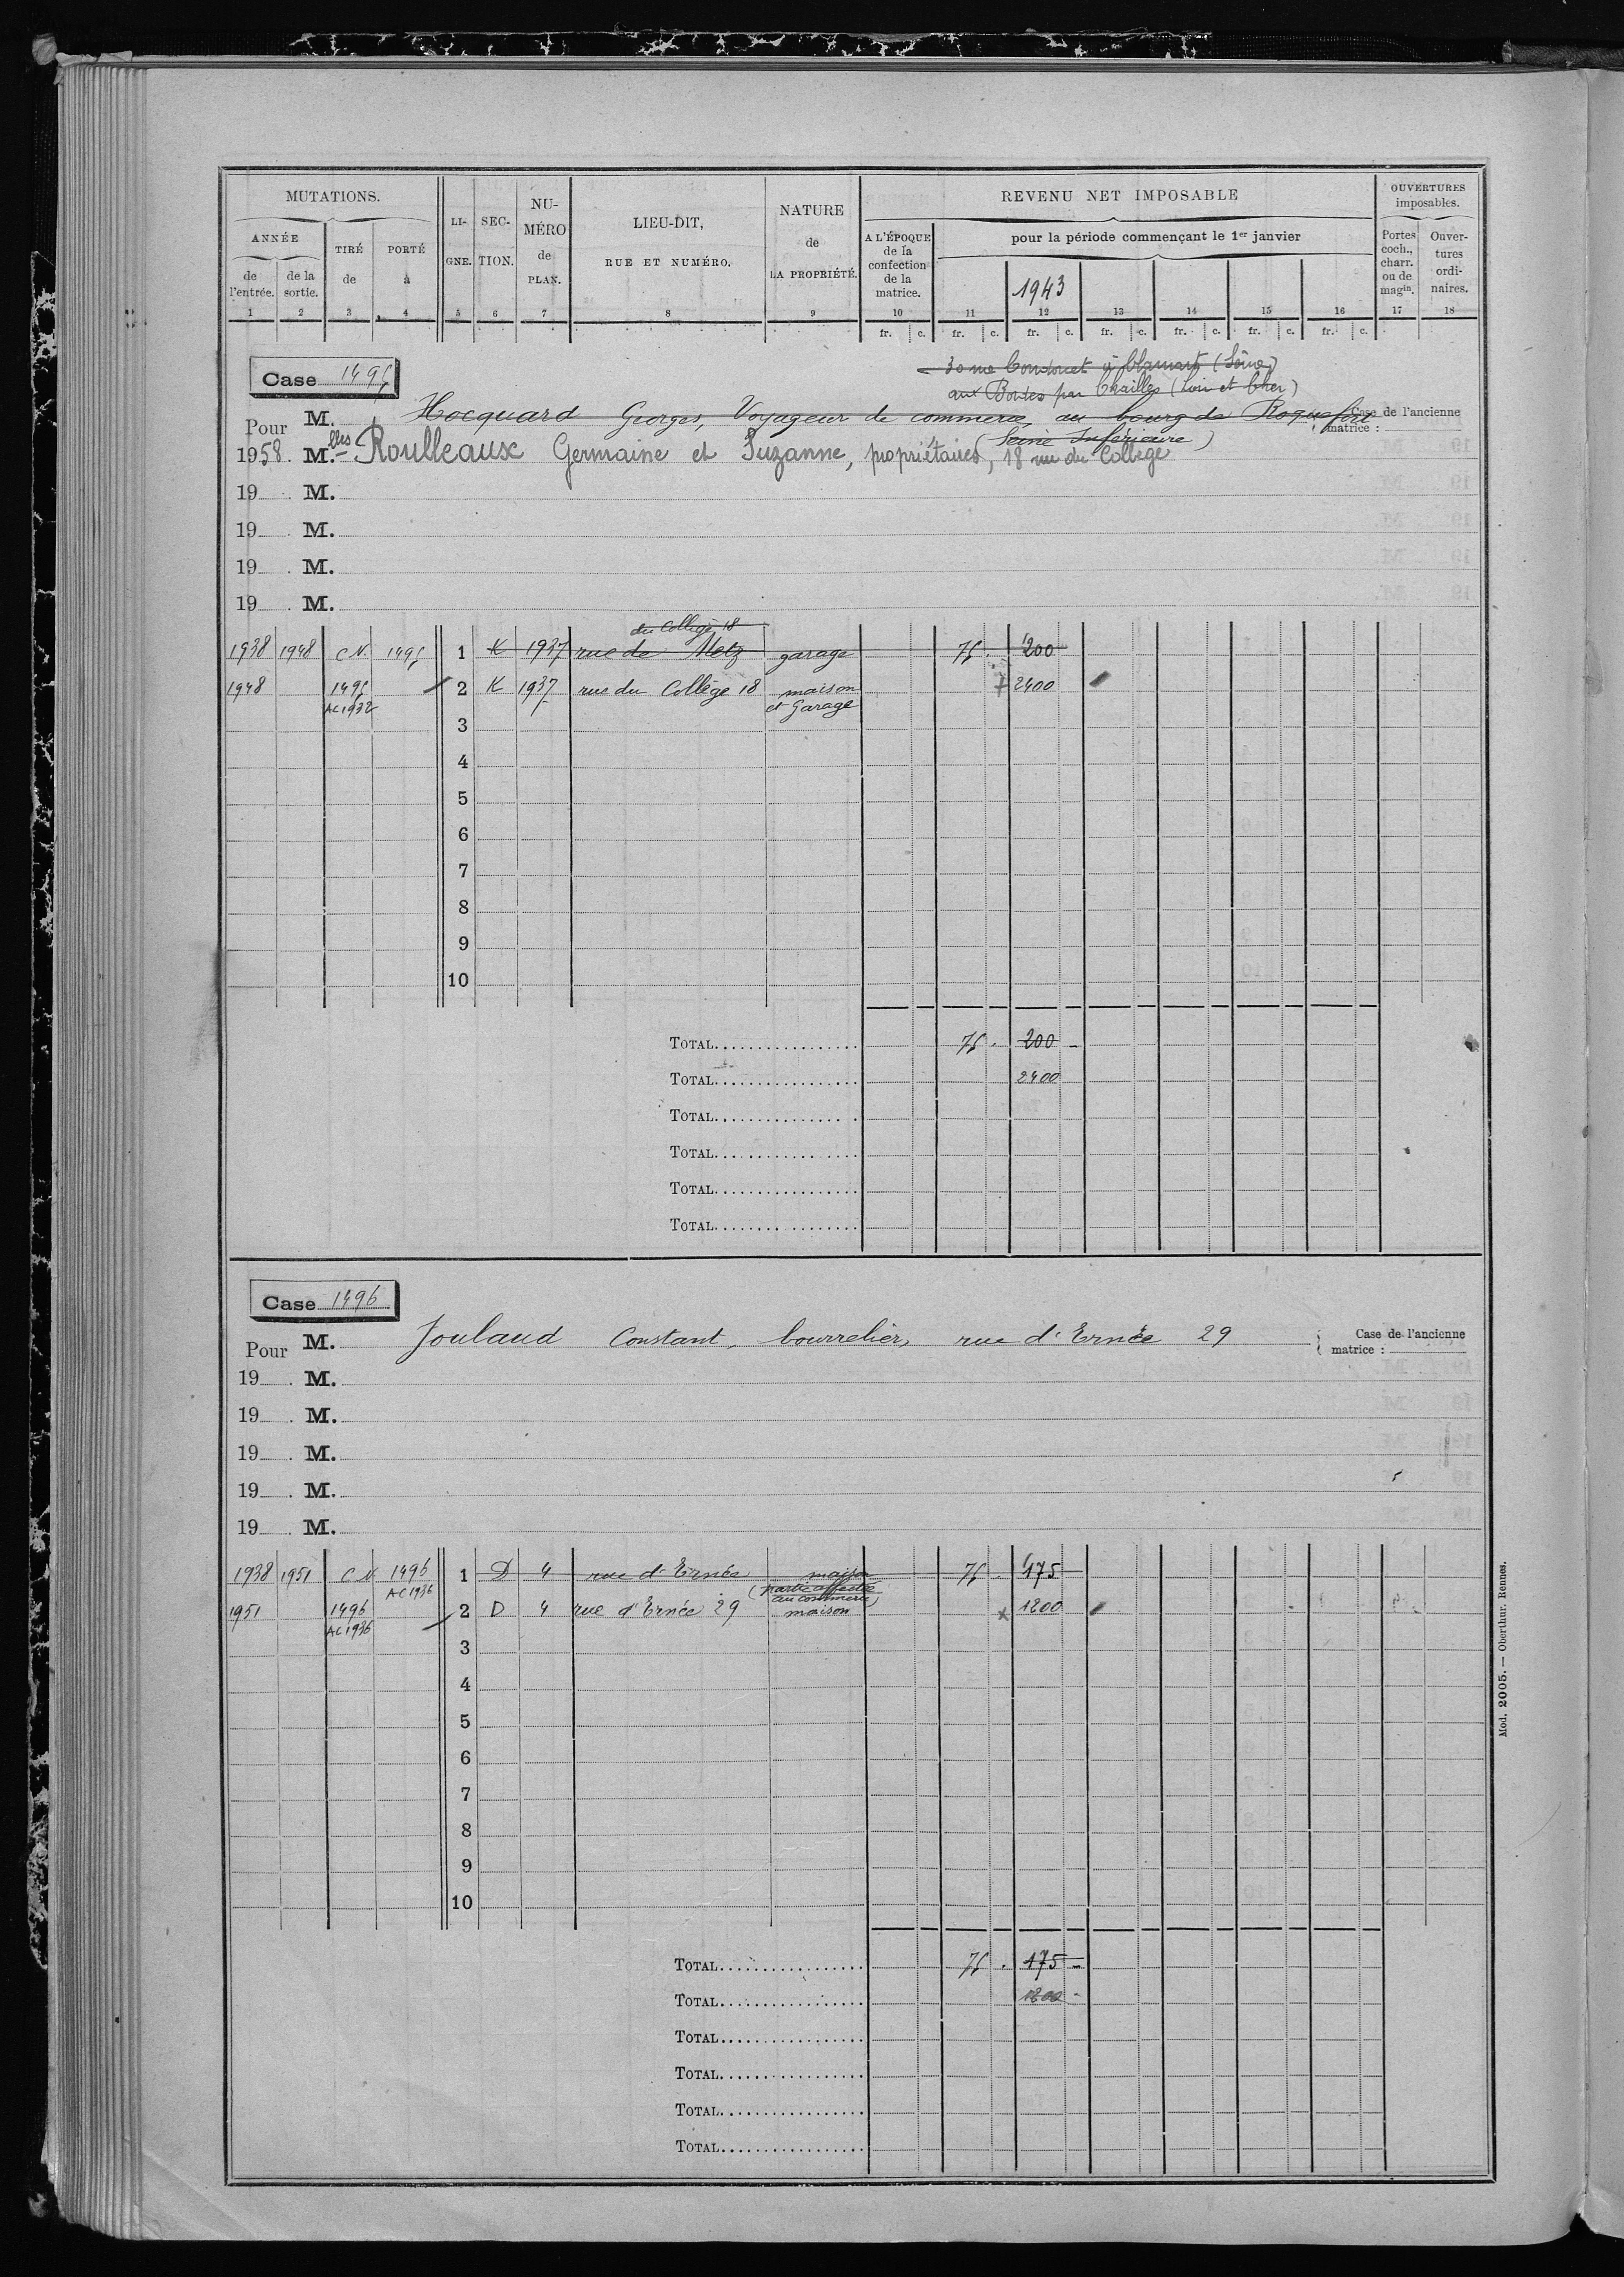 MUTATIONS.
ANNÉE
de l'entrée.
de la sortie.
TIRÉ de
PORTÉ à
LIGNE.
SECTION.
NUMÉRO de PLAN.
LIEU-DIT,
RUE ET NUMÉRO.
NATURE de LA PROPRIÉTÉ.
REVENU NET IMPOSABLE
A L'ÉPOQUE de la confection de la matrice.
pour la période commençant le 1er janvier
1943
OUVERTURES imposables.
Portes coch., charr. ou de magin.
Ouvertures ordinaires.
1 2 3 4 5 6 7 8 9 10 11 12 13 14 15 16 17 18
fr. c. fr. c. fr. c. fr. c. fr. c. fr. c. fr. c.
Case 1495
à Clamart (Seine)
aux Bordes par Chailles (Loir et Cher)
Pour M. Hocquard Georges, Voyageur de commerce, au bourg de Roquefort
Case de l'ancienne matrice :
(Seine Inférieure)
1958. M.elles Roulleaux Germaine et Suzanne, propriétaires, 18 rue du Collège
19 . M.
19 . M.
19 . M.
19 . M.
du Collège 18
1938 1948 C.N. 1495 1 K 1937 rue de Metz garage 75 . 200
1948 1495 2 K 1937 rue du Collège 18 maison 2400
AC 1932 et Garage
3
4
5
6
7
8
9
10
TOTAL 75 . 200 -
TOTAL 2400
TOTAL
TOTAL
TOTAL
TOTAL
Case 1496
Pour M. Joulaud Constant, bourrelier, rue d'Ernée 29
Case de l'ancienne matrice :
19 . M.
19 . M.
19 . M.
19 . M.
19 . M.
1938 1951 C.N. 1496 1 D 4 rue d'Ernée maison 75 . 175
AC 1936 (partie affectée
au commerce)
1951 1496 2 D 4 rue d'Ernée 29 maison x 1200
AC 1936
3
4
5
6
7
8
9
10
TOTAL 75 . 175 -
TOTAL 1200 -
TOTAL
TOTAL
TOTAL
TOTAL
Mod. 2005. — Oberthur. Rennes.